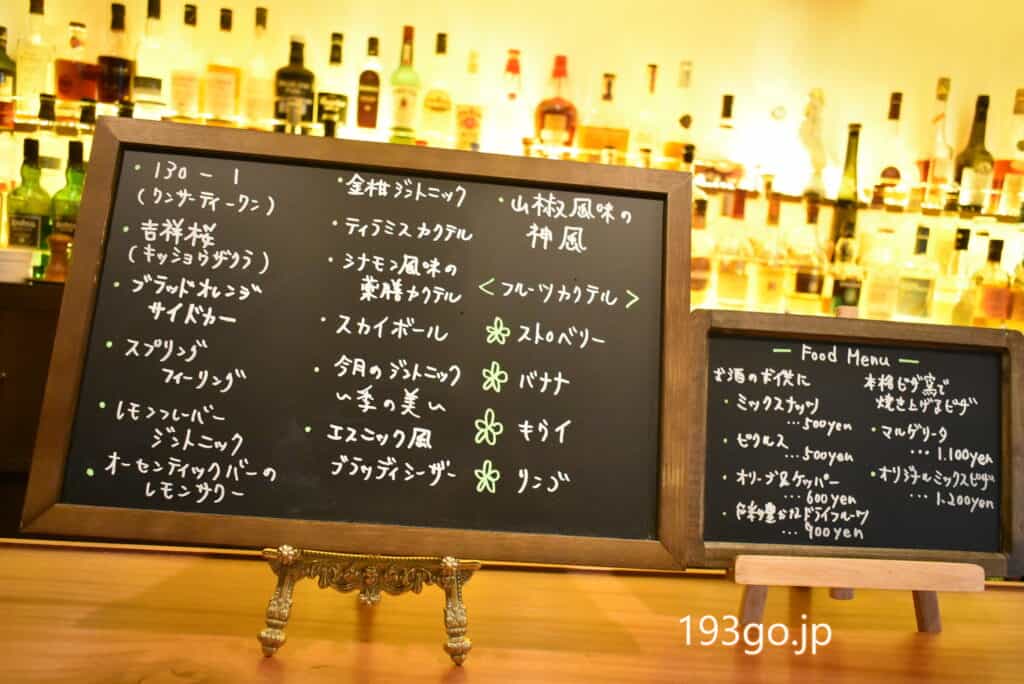 ・130-1
(ワンサーティーワン)
・吉祥桜
(キッショウザクラ)
・ブラッドオレンジ
サイドカー
・スプリング
フィーリング
・レモンフレーバー
ジントニック
・オーセンティックバーの
レモンサワー
・金柑ジントニック
・ティラミスカクテル
・シナモン風味の
薬膳カクテル
・スカイボール
・今月のジントニック
い季の美い
・エスニック風
ブラッディシーザー
・山椒風味の
神風
<フルーツカクテル>
ストロベリー
バナナ
キウイ
リンゴ
- Food Menu -
お酒のお供に
・ミックスナッツ
…500yen
・ピクルス
…500yen
・オリーブ&ケッパー
…600yen
ドライフルーツ
…900yen
本格ピザ窯で
焼き上げるピザ
・マルゲリータ
…1.100yen
・オリジナルミックスピザ
…1.200yen
193go.jp